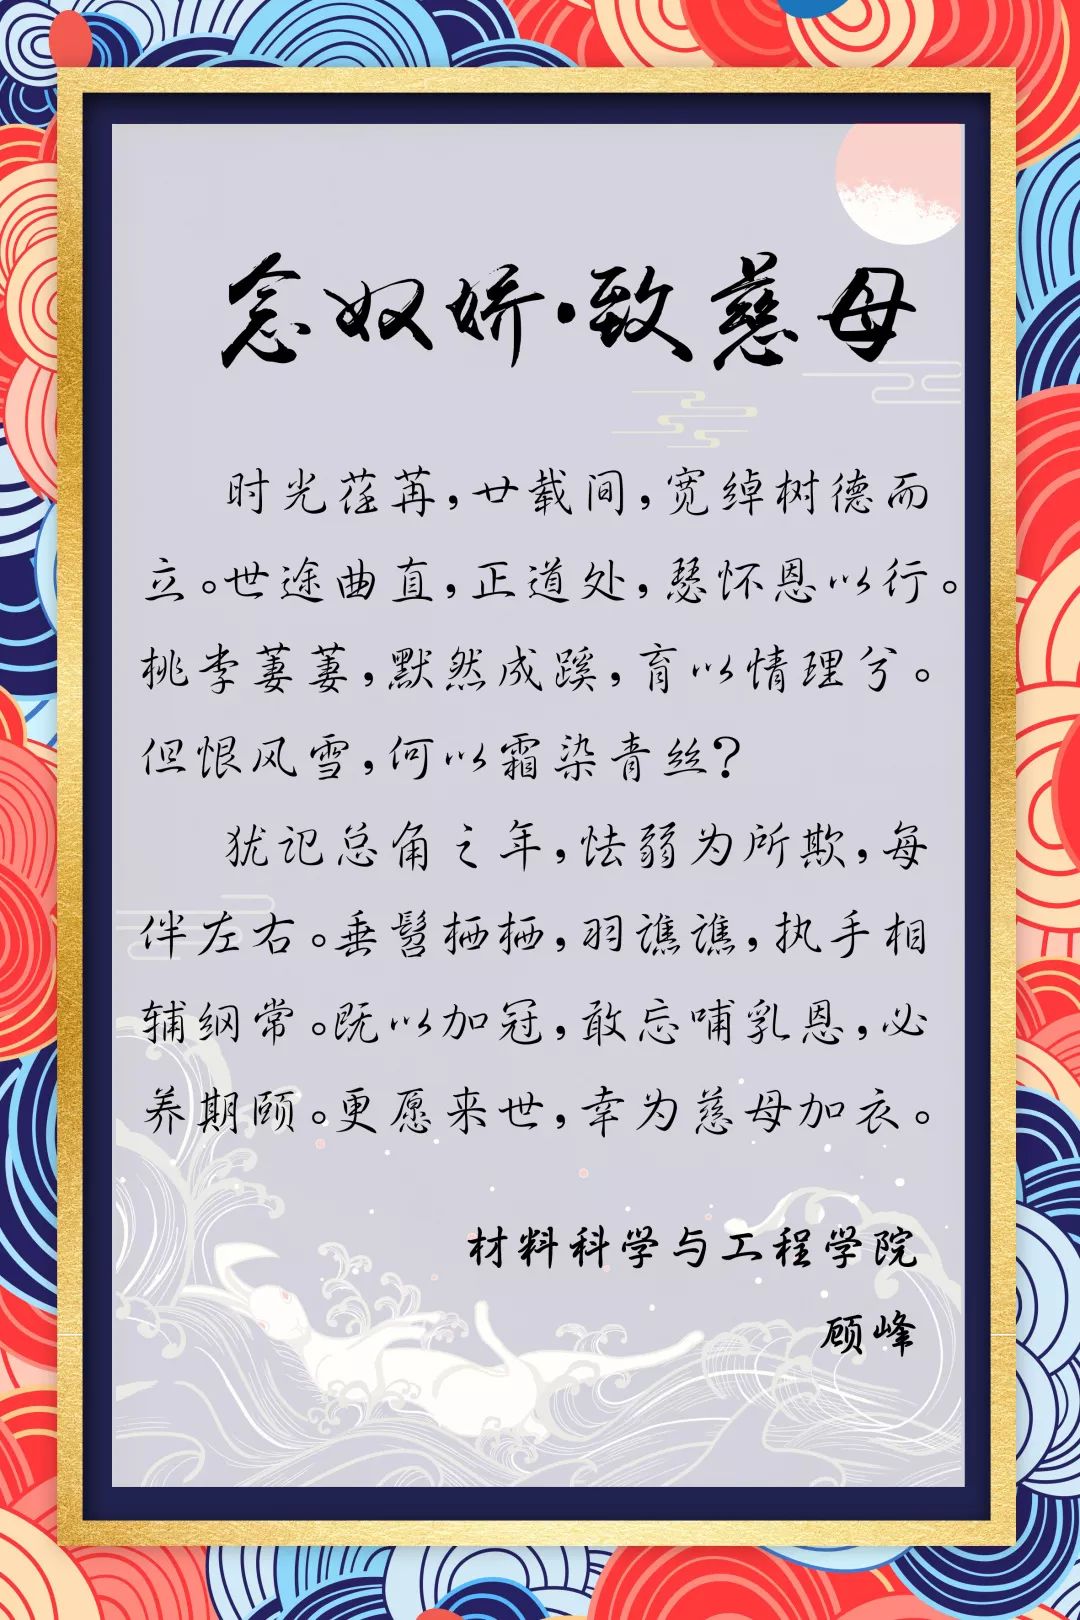 念奴娇·致慈母
时光荏苒，廿载间，宽绰树德而
立。世途曲直，正道处，瑟怀恩以行。
桃李萋萋，默然成蹊，育以情理兮。
但恨风雪，何以霜染青丝？
犹记总角之年，怯弱为所欺，每
伴左右。垂髫栖栖，羽谯谯，执手相
辅纲常。既以加冠，敢忘哺乳恩，必
养期颐。更愿来世，幸为慈母加衣。
材料科学与工程学院
顾峰